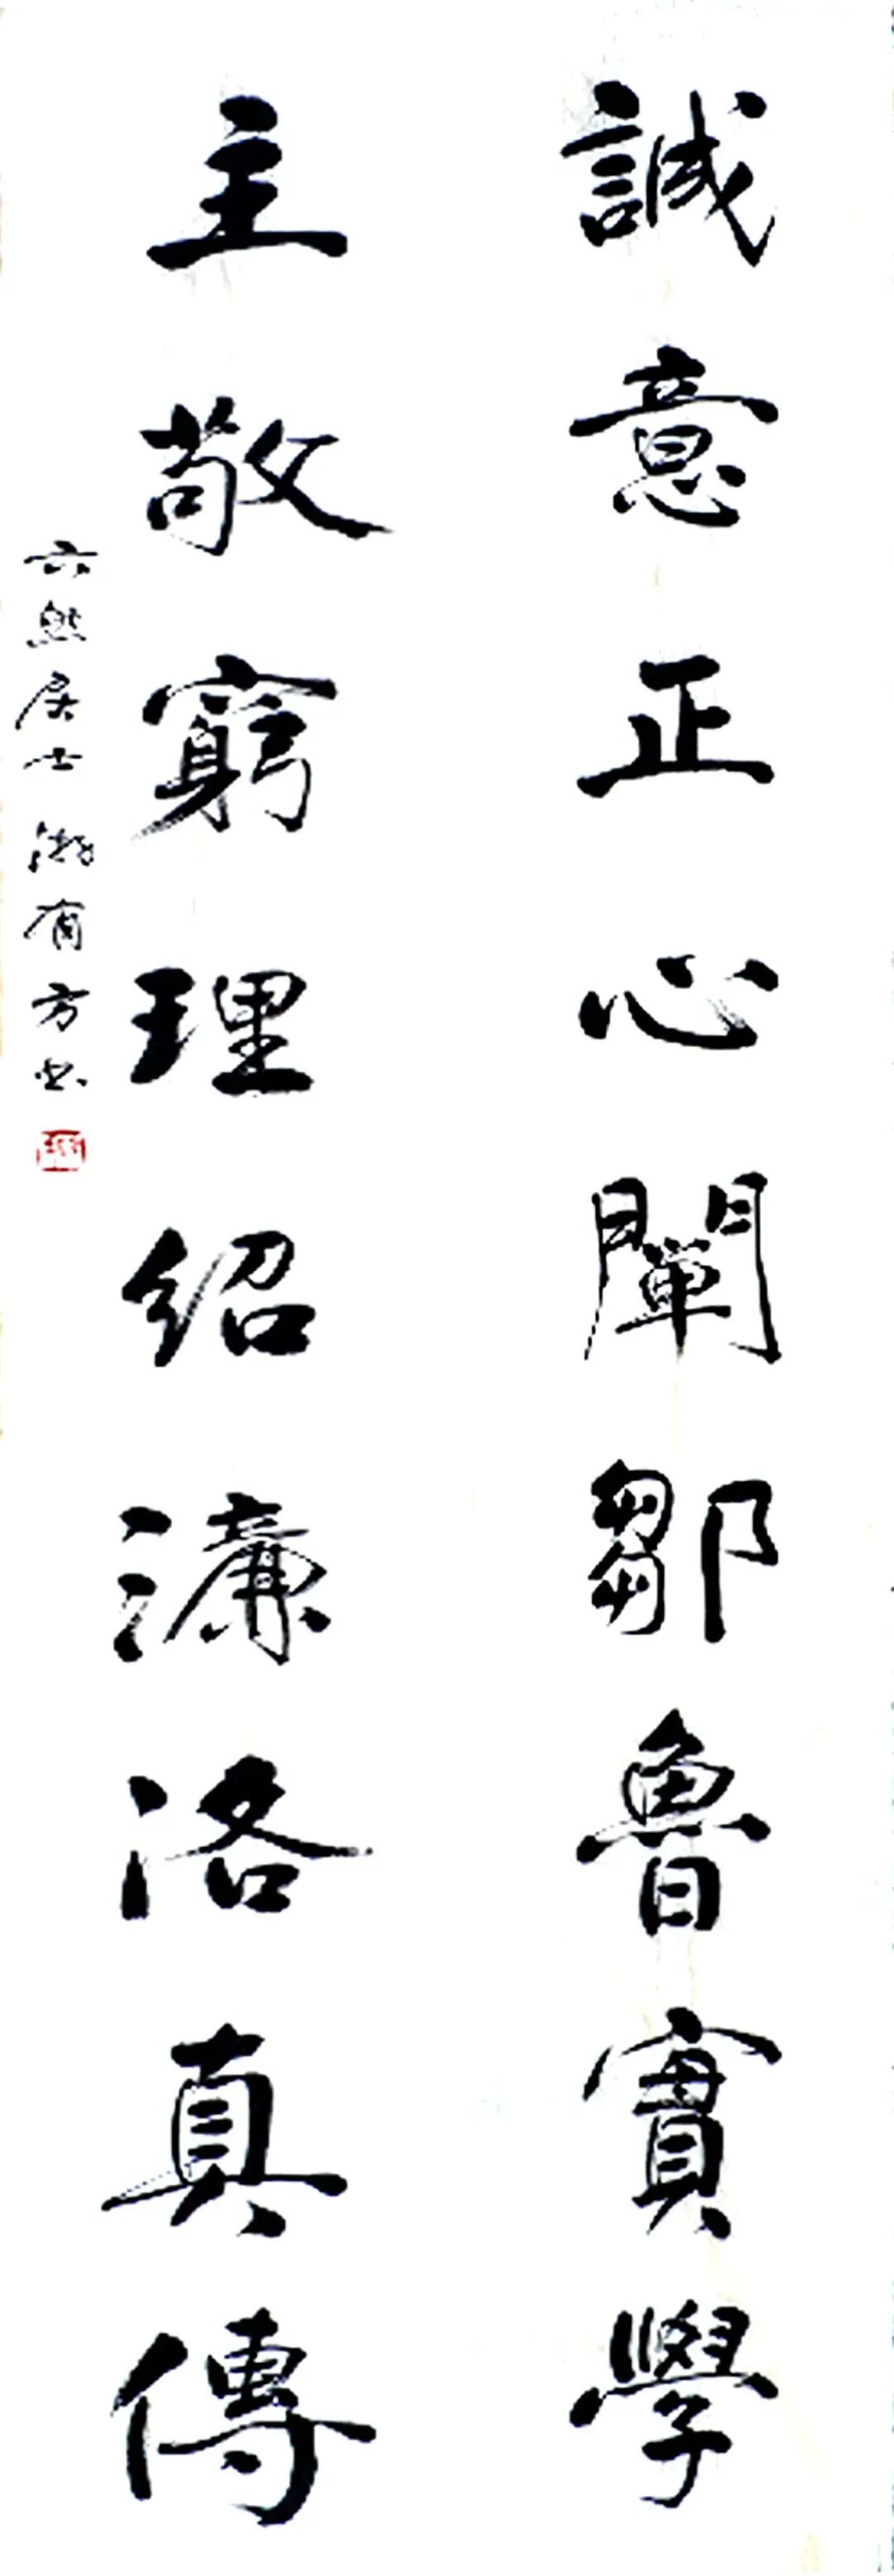 誠意正心闡鄒魯實學
主敬窮理紹濂洛真傳
六然居士 有方书